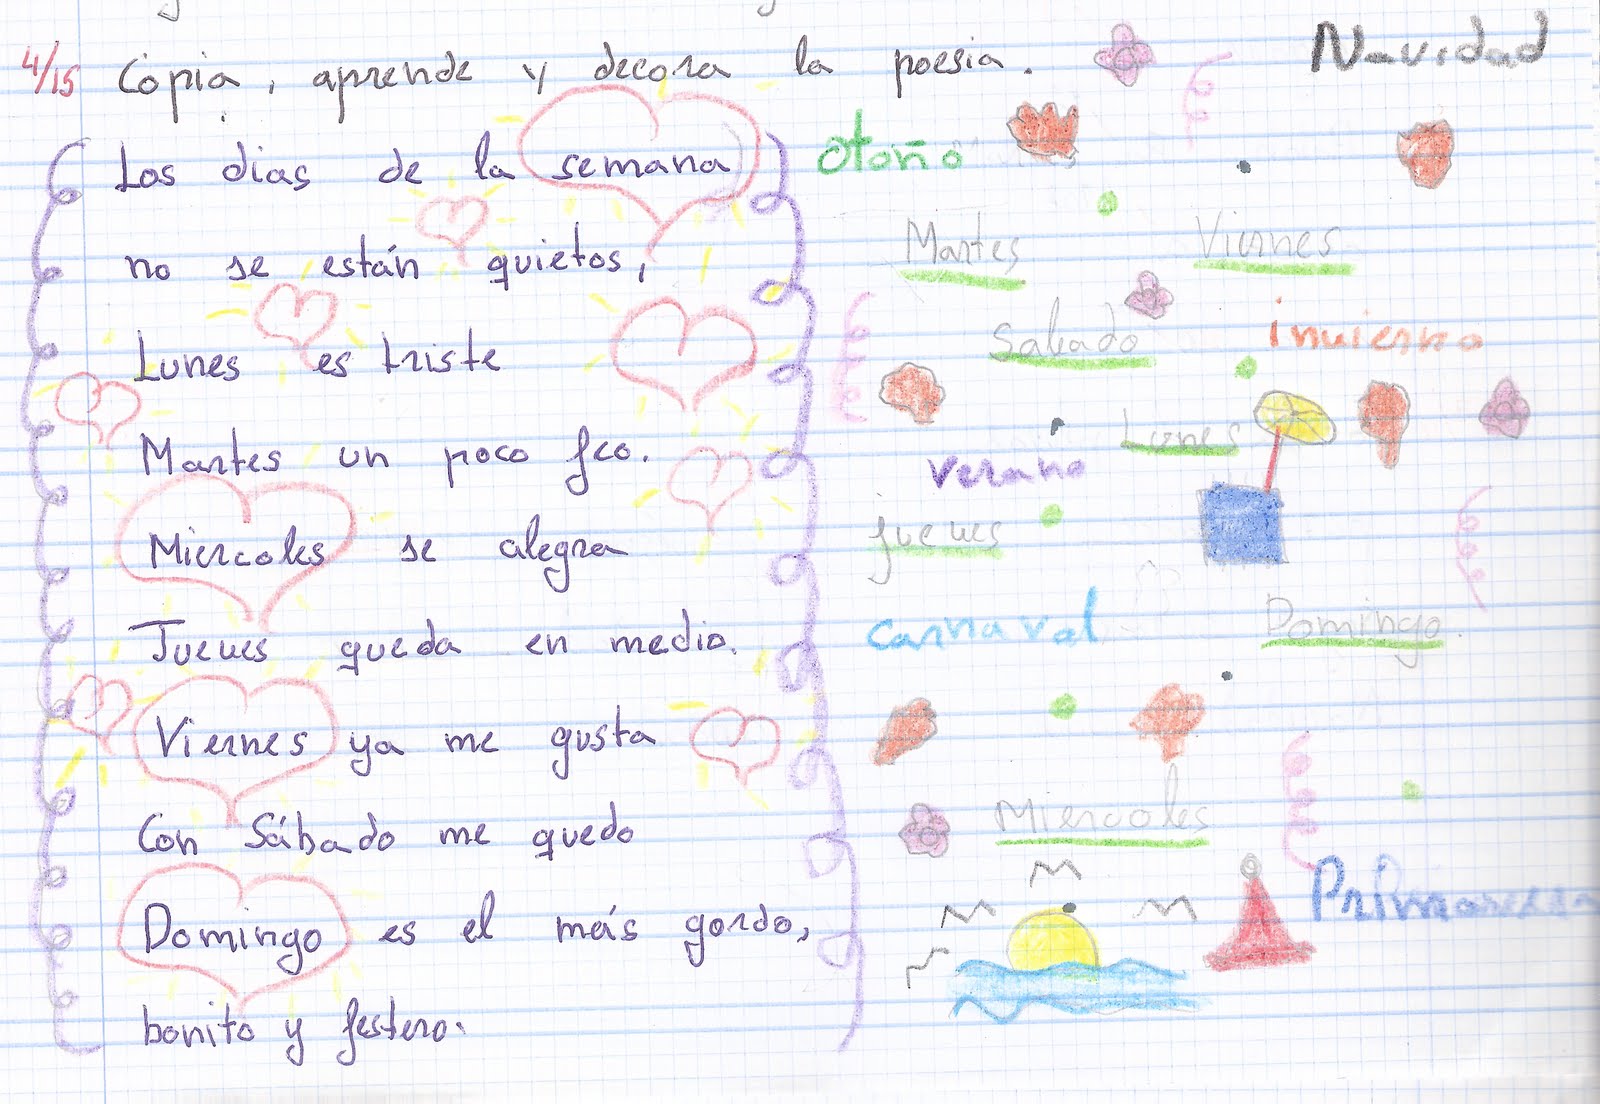 4/15 Copia, aprende y decora la poesia.
Los dias de la semana
no se están quietos,
Lunes es triste
Martes un poco feo.
Miercoles se alegra
Jueves queda en medio.
Viernes ya me gusta
Con Sábado me quedo
Domingo es el más gordo,
bonito y festero.
Navidad
otoño
Martes
Viernes
Sabado
invierno
Lunes
verano
jueves
carnaval
Domingo
Miercoles
Primavera